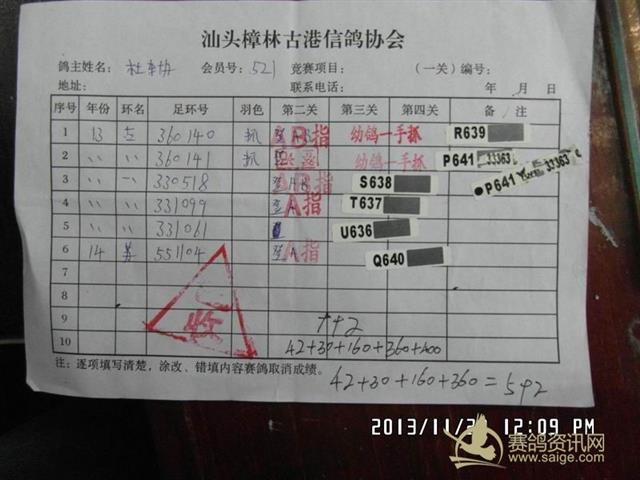 汕头樟林古港信鸽协会
鸽主姓名: 会员号: 521 竞赛项目: (一关)编号:
地址: 联系电话: 年 月 日
序号 年份 环名 足环号 羽色 第二关 第三关 第四关 备/注
1 13 360140 抓 B指 幼鸽一手抓 R639
2 〃 〃 360141 抓 幼鸽一手抓 P641 33363 P641 33363
3 〃 〃 330518 S638
4 〃 〃 331099 A指 T637
5 〃 〃 331061 U636
6 14 551104 A指 Q640
7
8
9 ++2
10 42+30+160+360+400
注:逐项填写清楚,涂改、错填内容赛鸽取消成绩。
42+30+160+360=592
2013/11/2 12:09 PM
赛鸽资讯网
www.saige.com